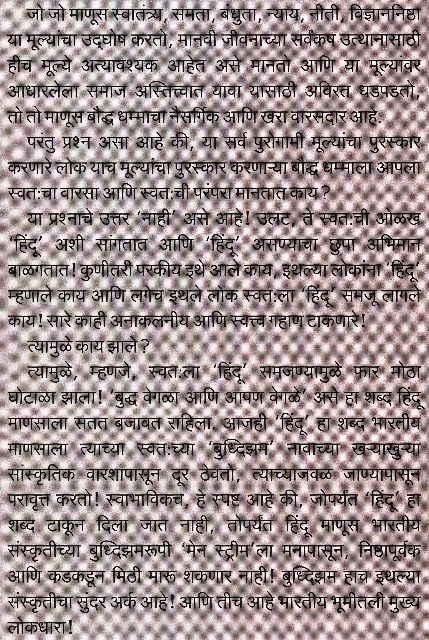 जो जो माणूस स्वातंत्र्य, समता, बंधुता, न्याय, नीती, विज्ञाननिष्ठा
या मूल्यांचा उद्घोष करतो, मानवी जीवनाच्या सर्वंकष उत्थानासाठी
हीच मूल्ये अत्यावश्यक आहेत असे मानतो आणि या मूल्यावर
आधारलेला समाज अस्तित्वात यावा यासाठी अविरत धडपडतो,
तो तो माणूस बौद्ध धम्माचा नैसर्गिक आणि खरा वारसदार आहे.
परंतु प्रश्न असा आहे की, या सर्व पुरोगामी मूल्यांचा पुरस्कार
करणारे लोक याच मूल्यांचा पुरस्कार करणाऱ्या बौद्ध धम्माला आपला
स्वत:चा वारसा आणि स्वत:ची परंपरा मानतात काय ?
या प्रश्नाचे उत्तर 'नाही' असे आहे! उलट, ते स्वत:ची ओळख
'हिंदू' अशी सांगतात आणि 'हिंदू' असण्याचा छुपा अभिमान
बाळगतात! कुणीतरी परकीय इथे आले काय, इथल्या लोकांना 'हिंदू'
म्हणाले काय आणि लगेच इथले लोक स्वत:ला 'हिंदू' समजू लागले
काय! सारे काही अनाकलनीय आणि स्वत्त्व गहाण टाकणारे!
त्यामुळे काय झाले ?
त्यामुळे, म्हणजे, स्वत:ला 'हिंदू' समजण्यामुळे फार मोठा
घोटाळा झाला! 'बुद्ध वेगळा आणि आपण वेगळे' असे हा शब्द हिंदू
माणसाला सतत बजावत राहिला. आजही 'हिंदू' हा शब्द भारतीय
माणसाला त्याच्या स्वत:च्या 'बुध्दिझम' नावाच्या खऱ्याखुऱ्या
सांस्कृतिक वारशापासून दूर ठेवतो, त्याच्याजवळ जाण्यापासून
परावृत्त करतो! स्वाभाविकच, हे स्पष्ट आहे की, जोपर्यंत 'हिंदू' हा
शब्द टाकून दिला जात नाही, तोपर्यंत हिंदू माणूस भारतीय
संस्कृतीच्या बुध्दिझमरूपी 'मेन स्ट्रीम'ला मनापासून, निष्ठापूर्वक
आणि कडकडून मिठी मारू शकणार नाही! बुध्दिझम हाच इथल्या
संस्कृतीचा सुंदर अर्क आहे! आणि तीच आहे भारतीय भूमीतली मुख्य
लोकधारा!